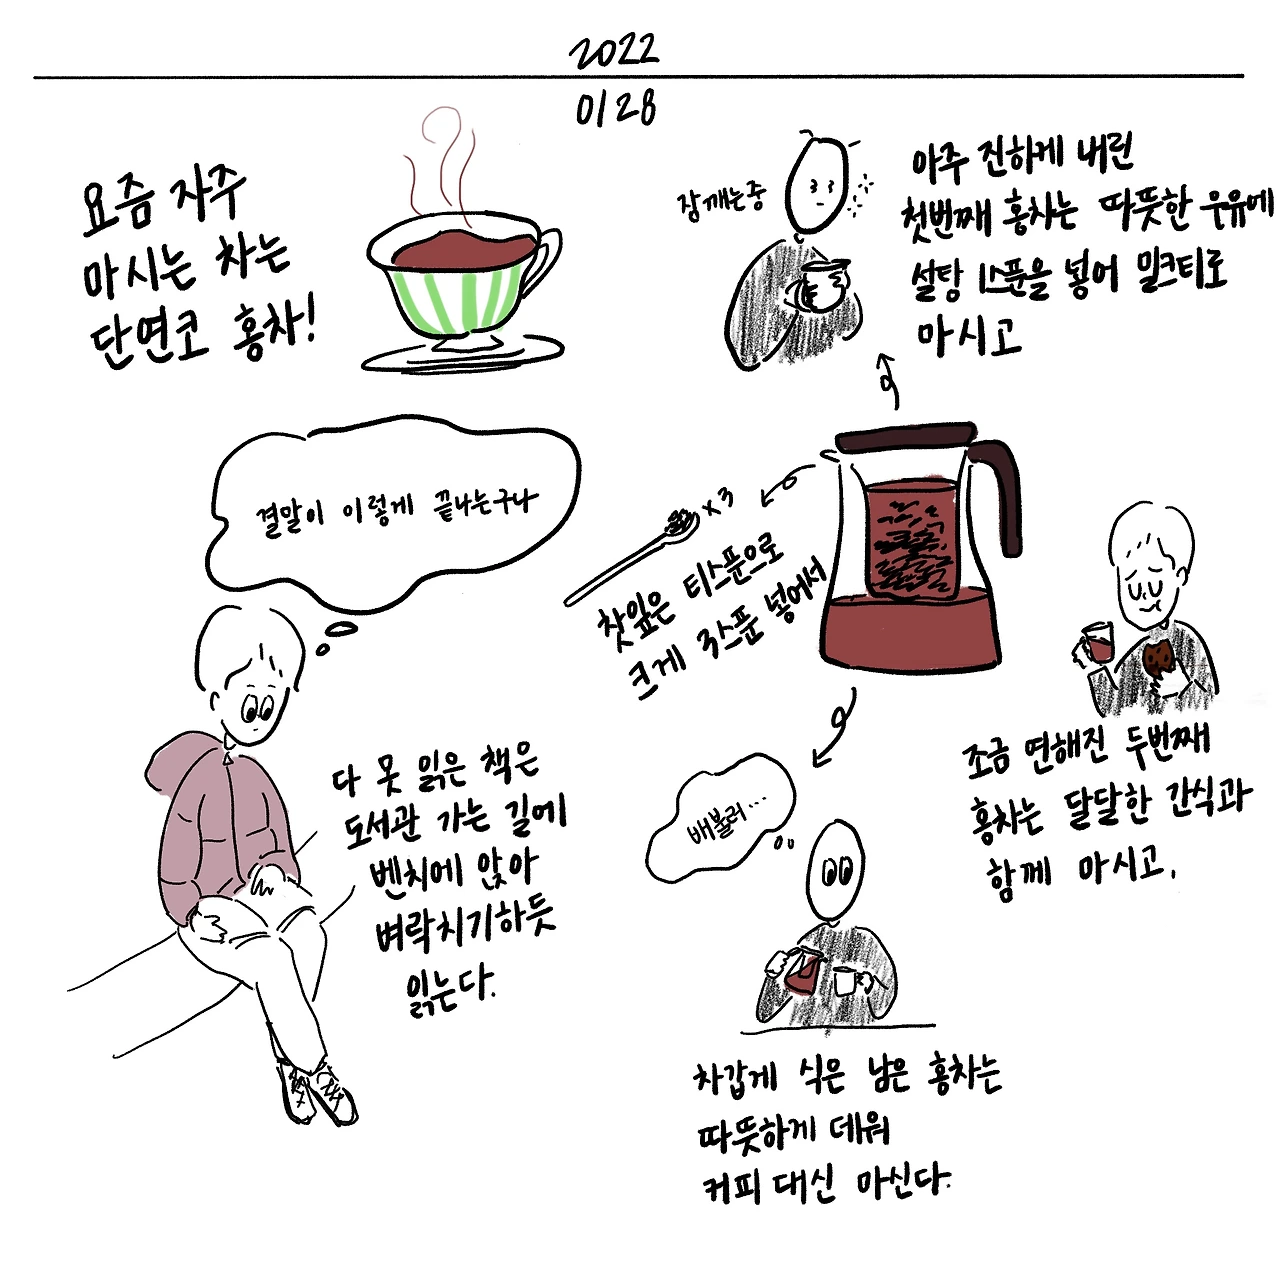 2022
0128
요즘 자주
마시는 차는
단연코 홍차!
잠깨는중
아주 진하게 내린
첫번째 홍차는 따뜻한 우유에
설탕 1스푼을 넣어 밀크티로
마시고
x3
찻잎은 티스푼으로
크게 3스푼 넣어서
조금 연해진 두번째
홍차는 달달한 간식과
함께 마시고,
배불러...
차갑게 식은 남은 홍차는
따뜻하게 데워
커피 대신 마신다.
결말이 이렇게 끝나는구나
다 못 읽은 책은
도서관 가는 길에
벤치에 앉아
벼락치기하듯
읽는다.